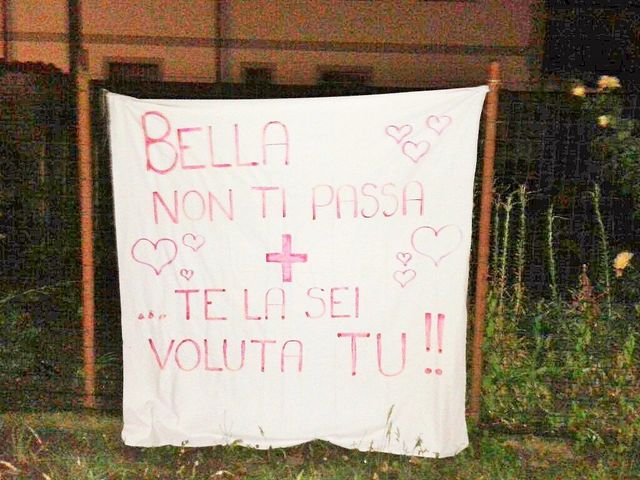 BELLA
NON TI PASSA
+
... TE LA SEI
VOLUTA TU!!